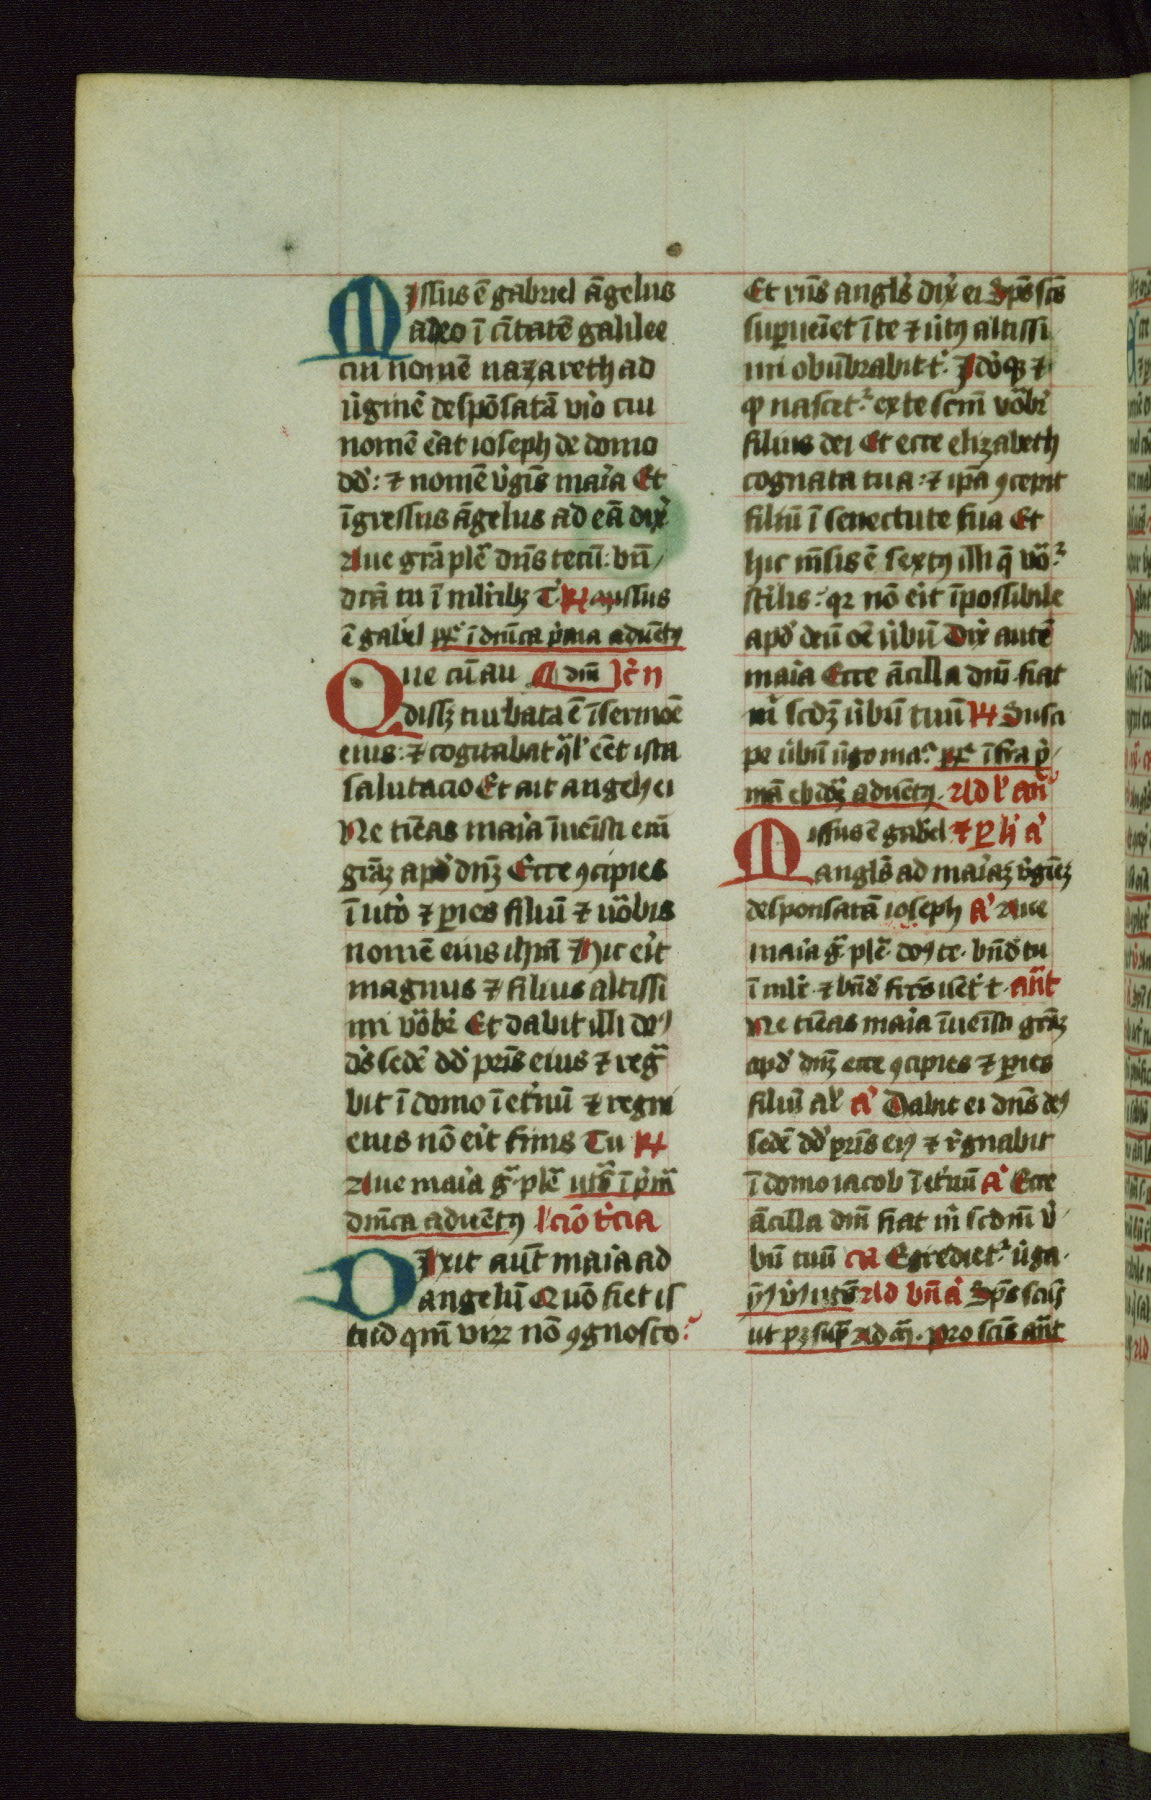 Missus ē gabriel āgelus
a deo ī ciuitatē galilee
cui nomē nazareth ad
v̓ginē despōsatā viro cui
nomē erat ioseph de domo
dd̓: ⁊ nomē v̓gīs maria Et
īgressus āgelus ad eā dix̓
Aue grā plē dn̄s tecū: bn̄
dcā tu ī mlr̄ibꝫ T̓ R̷ missus
ē gabel ꝶ̓ ī dn̄ica p̓ma aduētꝰ
Que cū au dīm lc̓ n
dissꝫ turbata ē ī sermōe
eius: ⁊ cogitabat q̄l̓ eēt ista
salutacio Et ait angelꝰ ei
Ne tīeas maria īueīsti em̄
grāꝫ apd̓ dnꝫ Ecce ꝯcipies
ī uto̓ ⁊ pies filiū ⁊ uōbis
nomē eius ihm̄ Hic erit
magnus ⁊ filius altissi
mi vōbr̄ Et dabit illi dn̄s
ds̓ sedē dd̓ pr̄is eius ⁊ reg̃
bit ī domo ī et̓nū ⁊ regni
eius nō erit finis Tu R̷
Aue maria g̃ plē ut s̃ ī p̓ma
dn̄ica aduētꝰ lc̓io t̓cia
Dixit aūt maria ad
angelū Quō fiet is
tud qm̄ virū nō ꝯgnosco:
Et rn̄s angls̓ dix̓ ei Sp̄s scs̄
supueīet ī te ⁊ v̓tꝰ altissi
mi obūbrabit t̓. Idōqꝫ ⁊
qd nascet᷑ ex te scm̄ vōbr̄
filius dei Et ecce elizabeth
cognata tua: ⁊ ipā ꝯcepit
filiū ī senectute sua Et
hic mēsis ē sextꝰ illi q̄ vō᷑
stilis: qꝛ nō erit īpossibile
apd̓ deū oē v̓bū Dix̓ autē
maria Ecce ācilla dn̄i fiat
m̓ scdꝫ v̓bū tuū R̷ Susci
pe v̓bū v̓go maᵃ ꝶ̓ īfra p̓
mā ebdōꝫ aduētꝰ. Ad l̓ an̄
Missus ē gabel ⁊ p h̓ a̓
angls̓ ad mariaꝫ v̓gīeꝫ
desponsatā ioseph a̓ Aue
maria g̃ plē. dn̄s te. bn̄d̓ tu
ī mlr̄. ⁊ bn̄d̓ frc̄s uēt̓ t. an̄t
Ne tīeas maria īueīsti grāꝫ
apd̓ dnꝫ ecce ꝯcipies ⁊ pies
filiū al̓ a̓ Dabit ei dn̄s dꝰ
sedē dd̓ pr̄is eiꝰ ⁊ r̓gnabit
ī domo iacob ī et̓nū a̓ Ecce
ācilla dn̄i fiat m̓ scdm̄ v̓
bū tuū ca Egrediet᷑ v̓ga.
ut s̄ Ad bn̄ a̓ Sp̄s scūs
ut pꝫ sup̄ Ad m̄. pro scīs an̄t